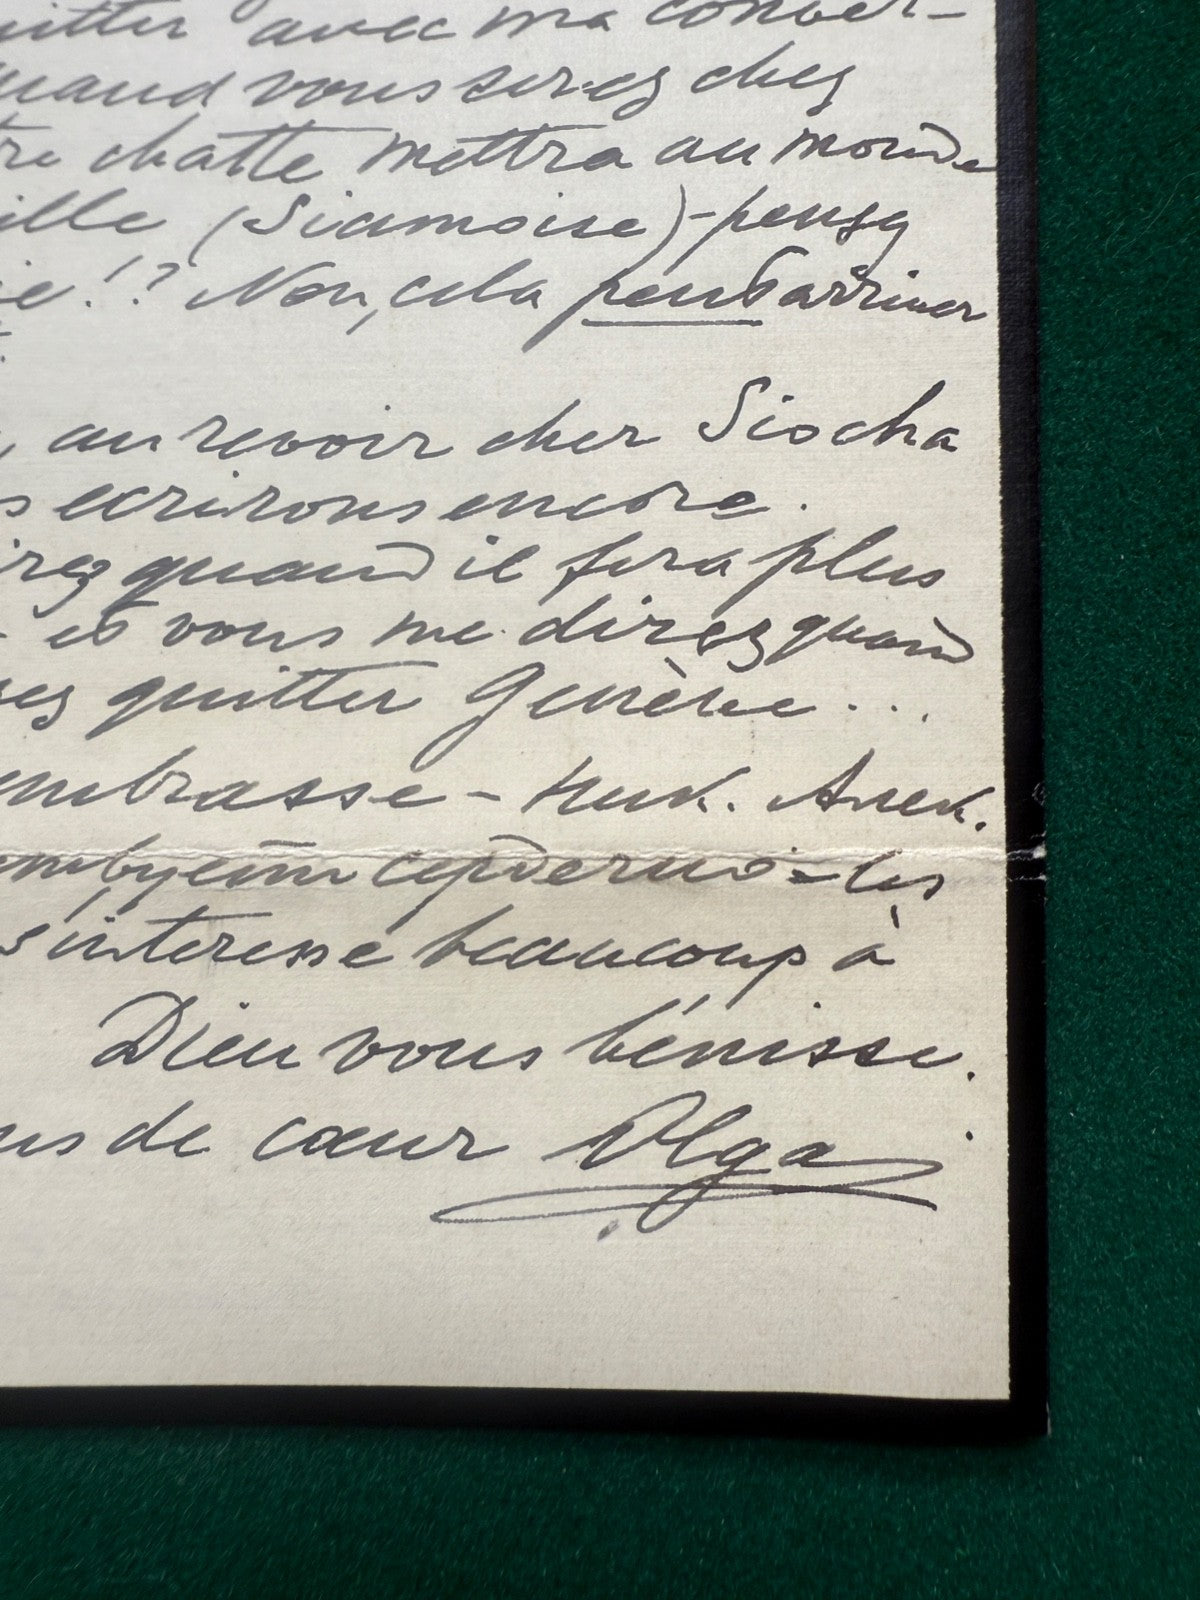 uitter avec ma conver-
quand vous serez chez
tre chatte mettra au monde
ille (Siamoise) - pensez
ie!? Non, cela peut arriver
, au revoir cher Siocha
s ecrirons encore.
irez quand il fera plus
- et vous me direz quand
sez quitter Genève...
embrasse -
- les
s'interesse beaucoup à
Dieu vous bénisse.
us de cœur Olga